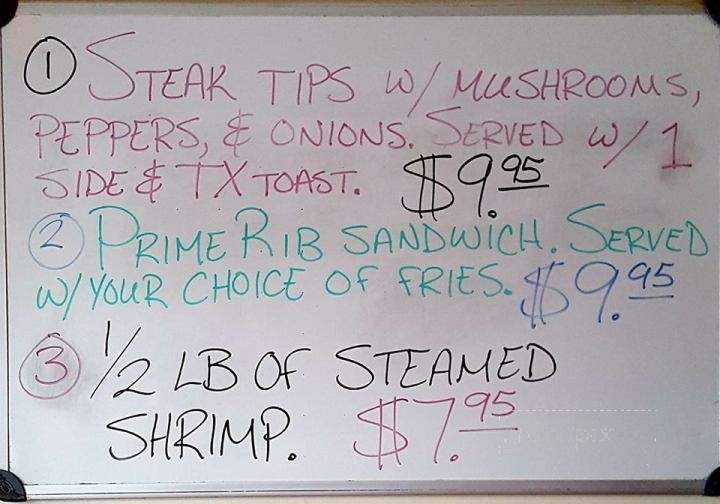 1 STEAK TIPS W/ MUSHROOMS,
PEPPERS, & ONIONS. SERVED W/ 1
SIDE & TX TOAST. $9.95
2 PRIME RIB SANDWICH. SERVED
W/ YOUR CHOICE OF FRIES. $9.95
3 1/2 LB OF STEAMED
SHRIMP. $7.95